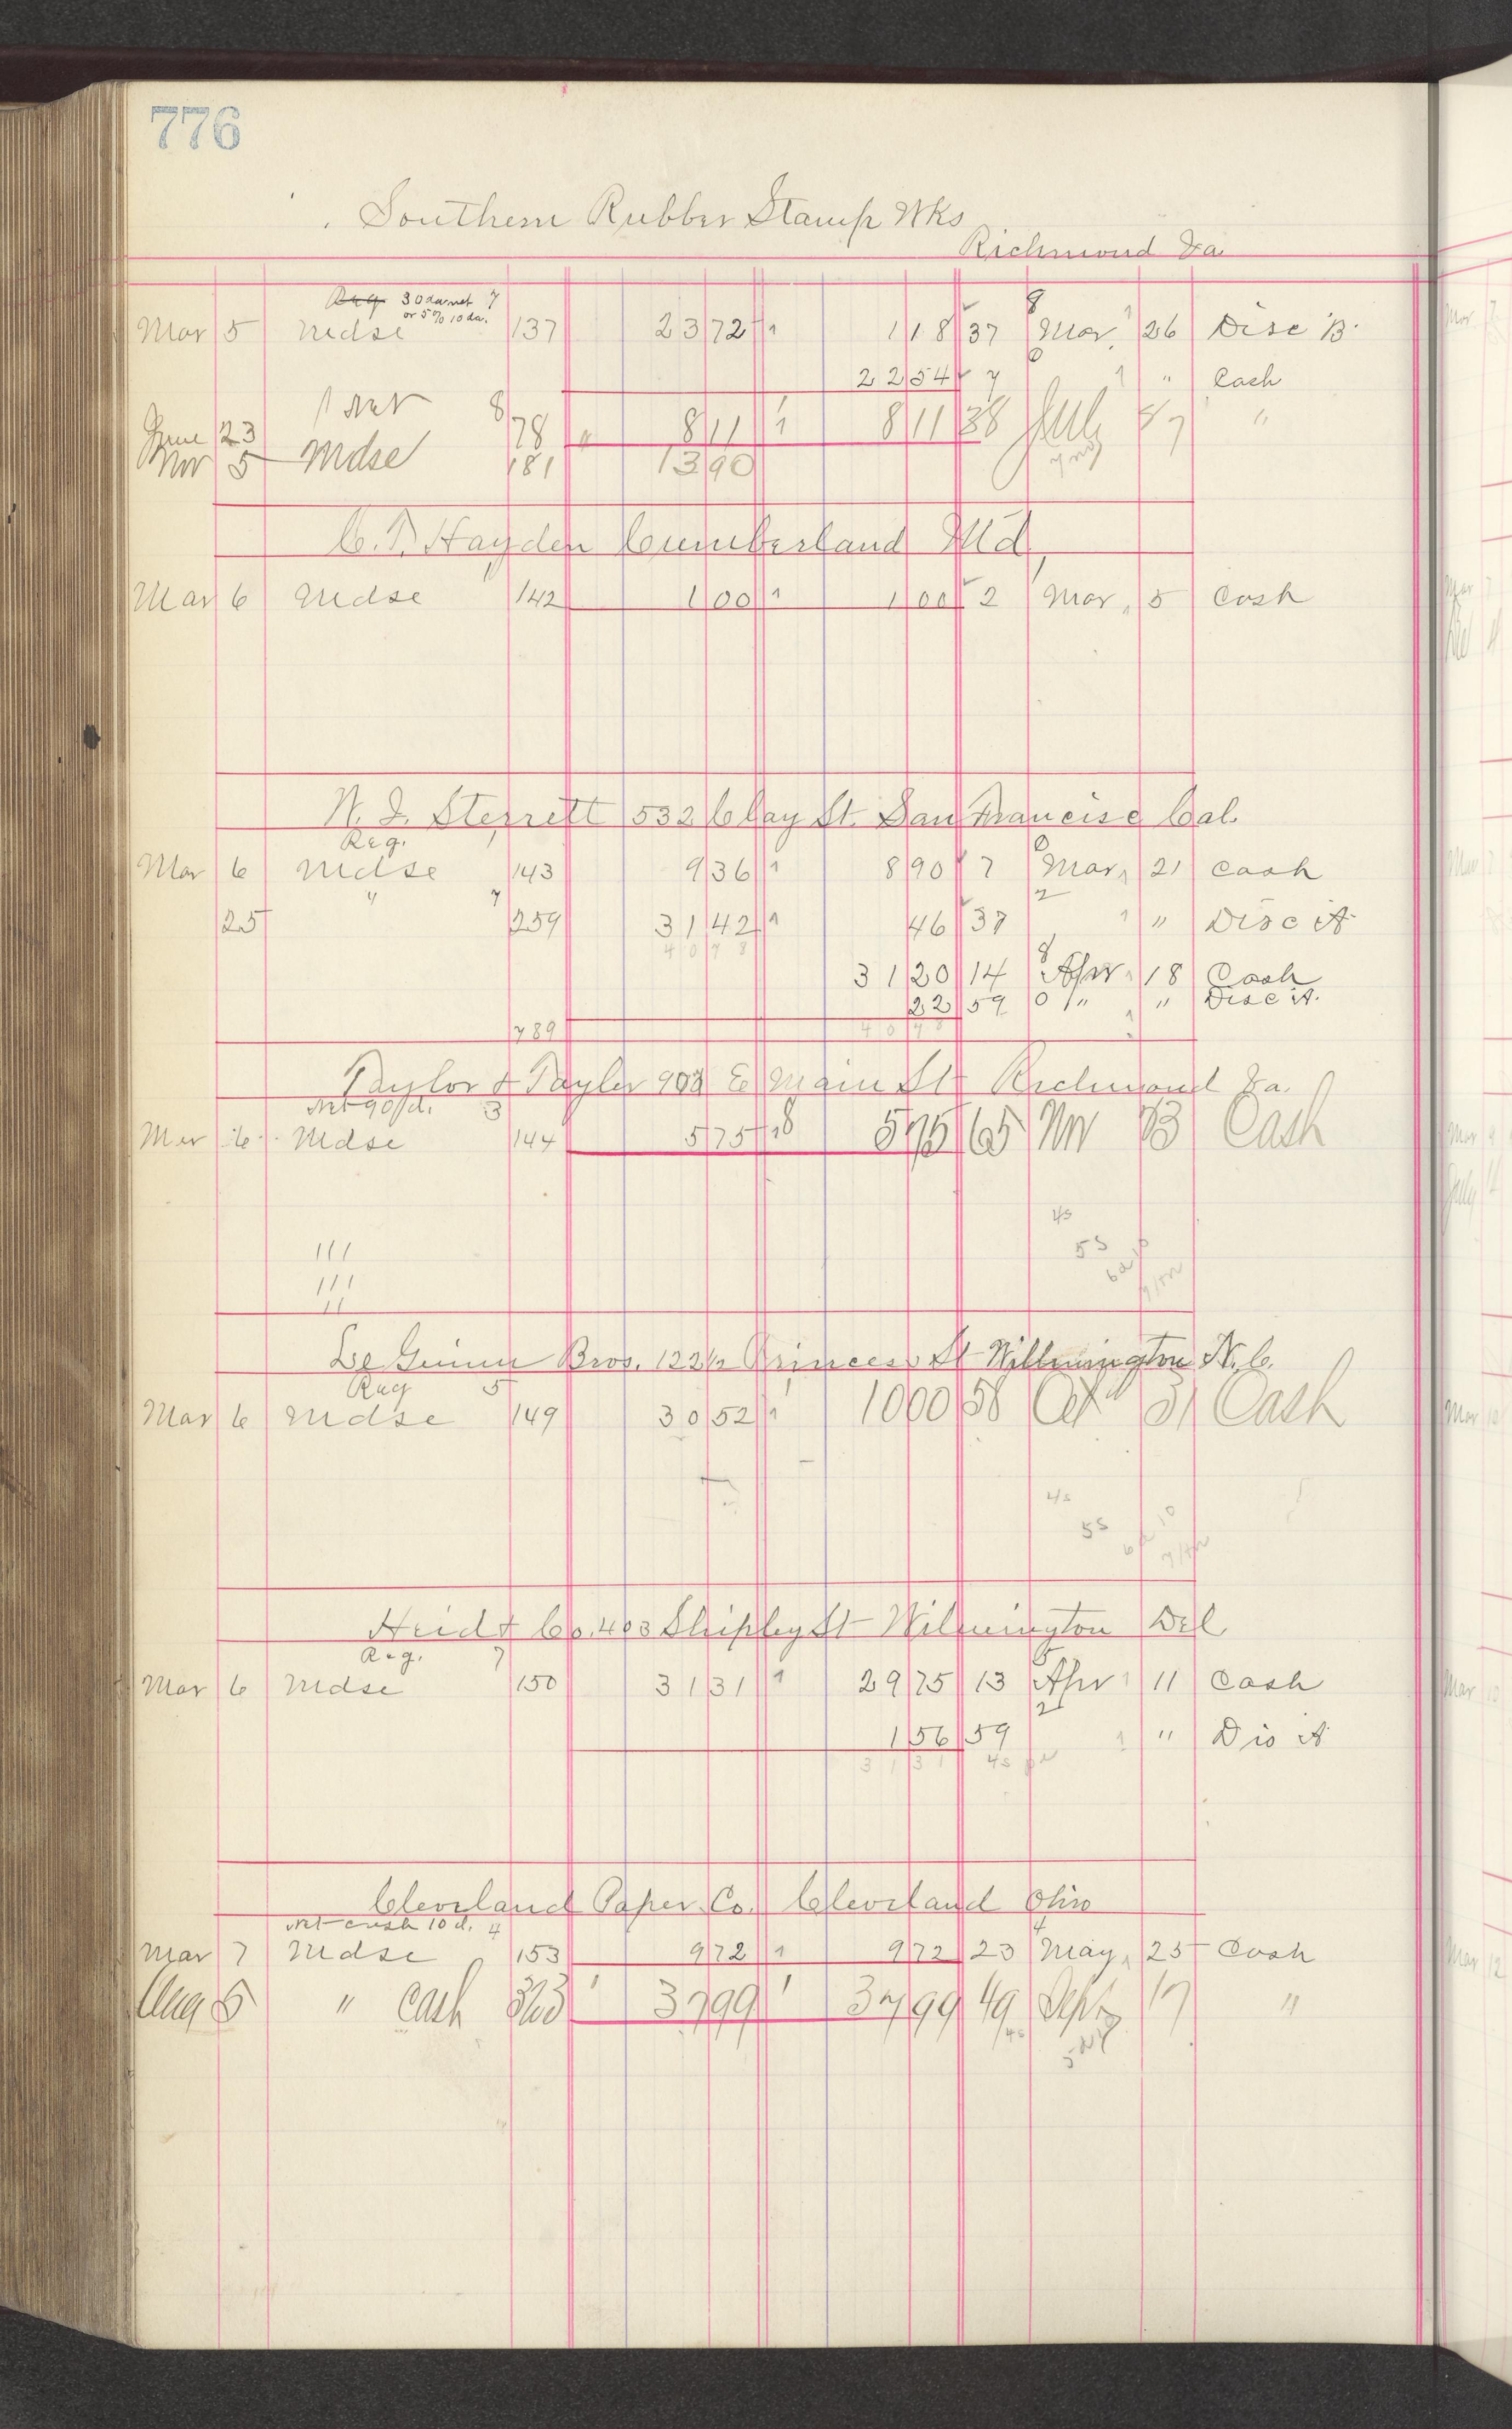 776
Southern Rubber Stamp Wks
Richmond Va.
Reg 30 da net 7
or 5% 10 da.
Mar 5 Mdse 137 23 72 1 1 18 37 8 Mar. 1 26 Disc B.
22 54 7 1 " Cash
1 Net 8
June 23 78 " 8 11 1 8 11 38 July 87 "
Nov 5 Mdse 181 13 90
C. P. Hayden Cumberland Md
Mar 6 Mdse 142 1 00 1 1 00 2 Mar, 5 Cash
N. J. Sterrett 532 Clay St. San Francisc Cal.
Reg.
Mar 6 Mdse 143 9 36 1 8 90 7 Mar, 21 Cash
25 " 7 259 31 42 1 46 37 2 1 " Disc A
40 78
31 20 14 8 Apr 1 18 Cash
22 59 0 " 1 " Disc A.
789 40 78
Taylor & Taylor 903 E Main St Richmond Va.
Net 90 d. 3
Mar 6 Mdse 144 5 75 18 5 75 65 Nov 13 Cash
4s
5s
111
111
11
Le Guinn Bros. 122 1/2 Princess St Wilmington N.C.
Reg 5
Mar 6 Mdse 149 30 52 1 10 00 58 Oct 31 Cash
4s
5s
Heid & Co. 403 Shipley St Wilmington Del
Reg. 7
Mar 6 Mdse 150 31 31 1 29 75 13 5 Apr 1 11 Cash
1 56 59 2 1 " Dis A
31 31 4s
Cleveland Paper Co. Cleveland Ohio
Net cash 10 d. 4
Mar 7 Mdse 153 9 72 1 9 72 23 4 May, 25 Cash
Aug 5 " Cash 363 1 37 99 1 37 99 49 Sept 17 "
4s